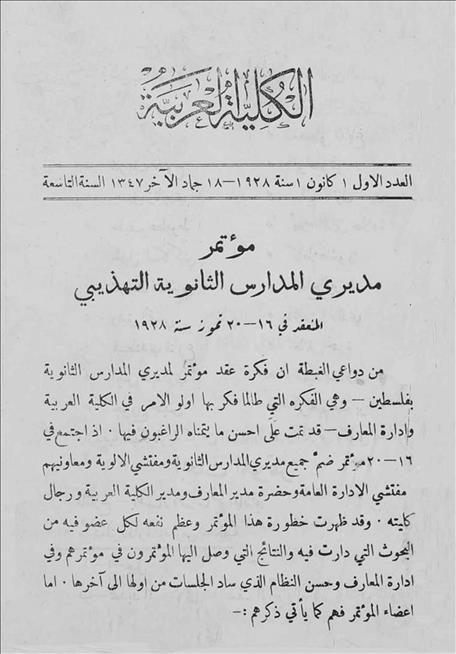 الكلية العربية
العدد الاول ١ كانون ١ سنة ١٩٢٨ — ١٨ جماد الآخر ١٣٤٧ السنة التاسعة
مؤتمر
مديري المدارس الثانوية التهذيبي
المنعقد في ١٦ — ٢٠ تموز سنة ١٩٢٨
من دواعي الغبطة ان فكرة عقد مؤتمر لمديري المدارس الثانوية
بفلسطين — وهي الفكره التي طالما فكر بها اولو الامر في الكلية العربية
وإدارة المعارف — قد تمت على احسن ما يتمناه الراغبون فيها . اذ اجتمع في
١٦—٢٠ مؤتمر ضم جميع مديري المدارس الثانوية ومفتشي الالوية ومعاونيهم
مفتشي الادارة العامة وحضرة مدير المعارف ومدير الكلية العربية ورجال
كليته . وقد ظهرت خطورة هذا المؤتمر وعظم نفعه لكل عضو فيه من
البحوث التي دارت فيه والنتائج التي وصل اليها المؤتمرون في مؤتمرهم وفي
ادارة المعارف وحسن النظام الذي ساد الجلسات من اولها الى آخرها . اما
اعضاء المؤتمر فهم كما يأتي ذكرهم :—